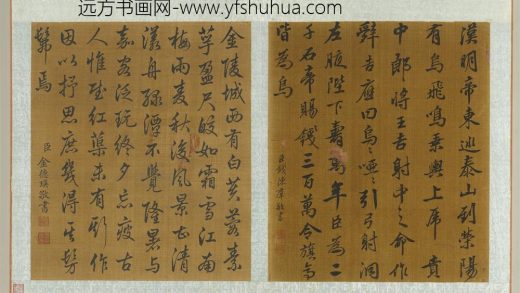 远方书画网- www.yfshuhua.com
漢明帝東巡泰山到滎陽
有烏飛鳴乘輿上虎賁
中郎將王吉射中之命作
辭吉應曰烏々啞々引弓射洞
左腋陛下壽萬年臣為二
千石帝賜錢三百萬令旗亭
皆為烏
臣錢陳羣敬書
金陵城西有白芙蓉素
萼盈尺皎如霜雪江南
梅雨麦秋後風景甚清
漾舟緑潭不覺隆暑与
嘉客泛玩終夕忘疲古
人惟賦紅蕖未有斯作
因以抒思庶幾得其髣
髴焉
臣金德瑛敬書